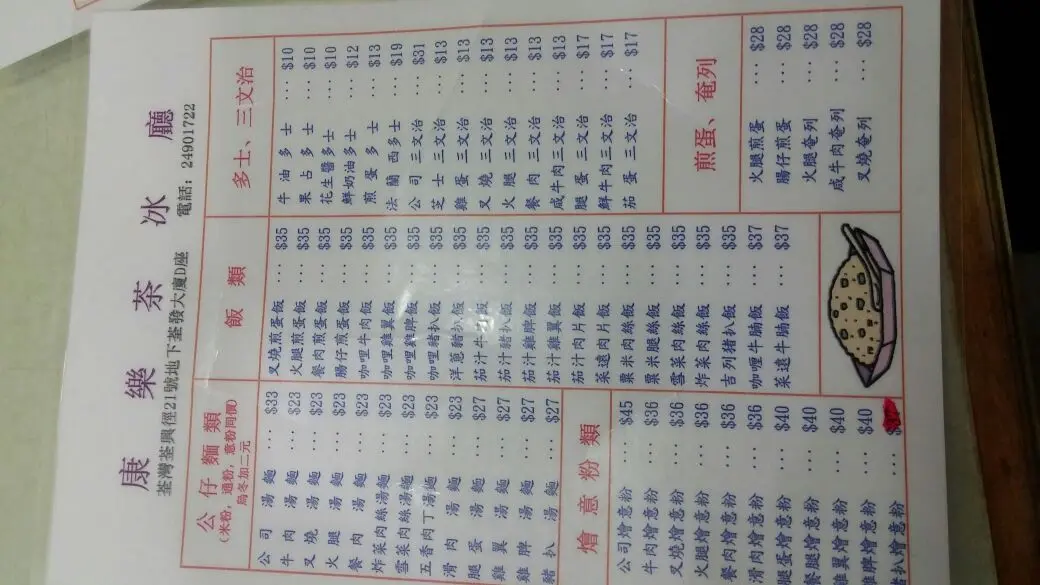 康樂茶冰廳
荃灣荃興徑21號地下荃發大廈D座 電話：24901722
公仔麵類
(米粉，通粉，意粉同價)
烏冬加二元
公司湯麵 ... $33
牛肉湯麵 ... $23
叉燒湯麵 ... $23
火腿湯麵 ... $23
餐肉湯麵 ... $23
炸菜肉絲湯麵 $23
雪菜肉絲湯麵 $23
五香肉丁湯麵 $23
滑肉湯麵 ... $23
腿蛋湯麵 ... $27
雞翼湯麵 ... $27
雞髀湯麵 ... $27
豬扒湯麵 ... $27
燴意粉類
公司燴意粉 ... $45
牛肉燴意粉 ... $36
叉燒燴意粉 ... $36
火腿燴意粉 ... $36
餐肉燴意粉 ... $36
滑肉燴意粉 ... $36
腿蛋燴意粉 ... $40
餐腿燴意粉 ... $40
雞翼燴意粉 ... $40
雞髀燴意粉 ... $40
豬扒燴意粉 ...
飯類
叉燒煎蛋飯 ... $35
火腿煎蛋飯 ... $35
餐肉煎蛋飯 ... $35
腸仔煎蛋飯 ... $35
咖喱牛肉飯 ... $35
咖喱雞翼飯 ... $35
咖喱雞髀飯 ... $35
咖喱豬扒飯 ... $35
洋蔥豬扒飯 ... $35
茄汁牛肉飯 ... $35
茄汁豬扒飯 ... $35
茄汁雞髀飯 ... $35
茄汁雞翼飯 ... $35
茄汁肉片飯 ... $35
菜遠肉片飯 ... $35
粟米肉絲飯 ... $35
粟米腿絲飯 ... $35
雪菜肉絲飯 ... $35
炸菜肉絲飯 ... $35
吉列豬扒飯 ... $35
咖喱牛腩飯 ... $37
菜遠牛腩飯 ... $37
多士、三文治
牛油多士 ... $10
果占多士 ... $10
花生醬多士 ... $10
鮮奶油多士 ... $12
煎蛋多士 ... $13
法蘭西多士 ... $19
公司三文治 ... $31
芝士三文治 ... $13
雞蛋三文治 ... $13
叉燒三文治 ... $13
火腿三文治 ... $13
餐肉三文治 ... $13
咸牛肉三文治 ... $13
腿蛋三文治 ... $17
鮮牛肉三文治 ... $17
茄蛋三文治 ... $17
煎蛋、奄列
火腿煎蛋 ... $28
腸仔煎蛋 ... $28
火腿奄列 ... $28
咸牛肉奄列 ... $28
叉燒奄列 ... $28